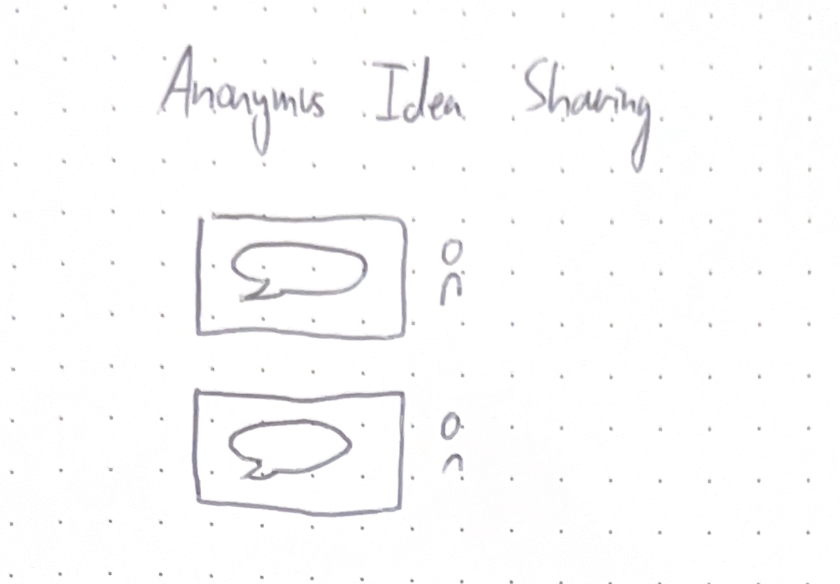 Anonymus Idea Sharing